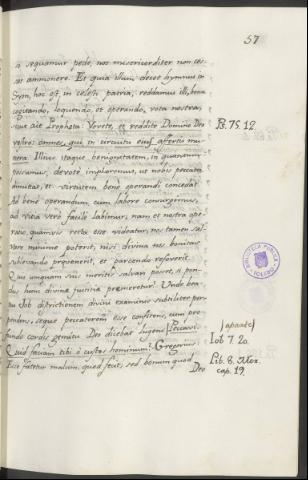 57
a sequamur pede, nos misericorditer non ces-
sat ammonere. Et quia illum decet hymnus in
Syon, hoc est, in celesti patria, reddamus illi, bene
cogitando, loquendo, et operando, vota nostra,
sicut ait Propheta: Vovete, et reddite Domino Deo
vestro omnes, qui in circuitu eius affertis mu-
nera. Illius itaque benignitatem, in quantum
possumus, devote imploremus, ut nobis peccata
dimittat, et virtutem bene operandi concedat.
Ad bene operandum cum labore consurgimus,
ad vitia vero facile labimur, nam et nostra ope-
ratio, quamvis recta esse videatur, nos tamen sal-
vare minime poterit, nisi divina nos bonitas
subveniendo prevenerit, et parcendo refoverit.
Quis unquam suis meritis salvari posset, si pon-
dus hunc divinae iustitiae premeretur? Unde bea-
tus Job districtionem divini examinis subtiliter per-
pendens, seque peccatorem esse confitens, cum pro-
fundo cordis gemitu Deo dicebat lugens: Peccavi.
Quid faciam tibi o custos hominum? Gregorius.
Ecce fatetur malum, quod fecit, sed bonum quod
Deo
Ps. 75. 12
BIBLIOTECA PUBLICA
TOLEDO
(aparte)
Iob 7. 20.
Lib. 8. Mor.
cap. 19.